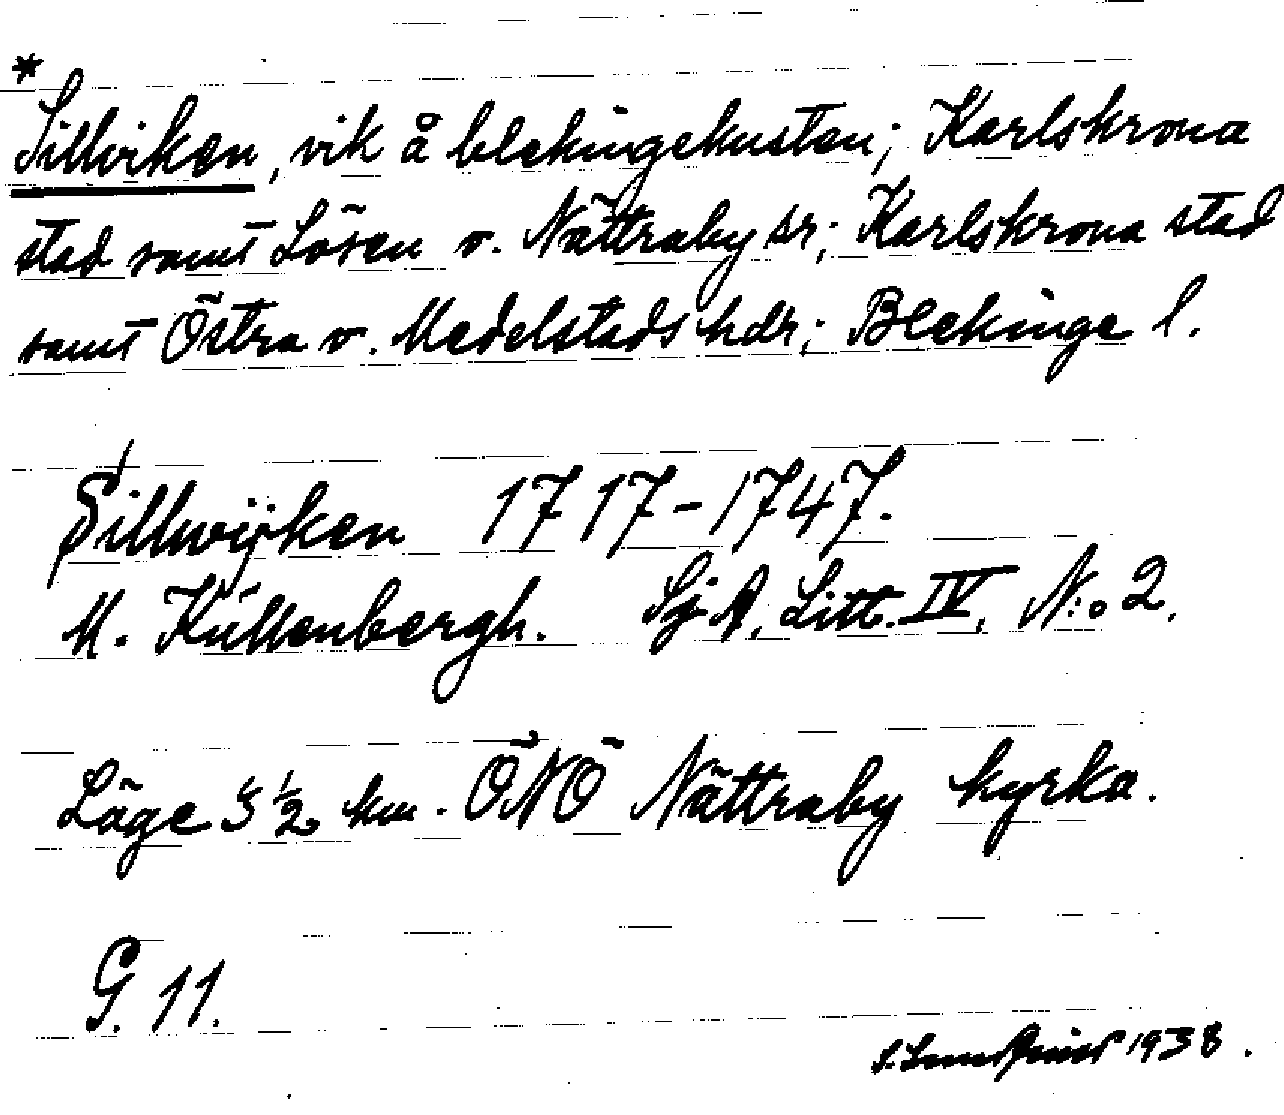 *
Sillviken, vik å blekingekusten; Karlskrona
stad samt Lösen o. Nättraby sr; Karlskrona stad
samt Östra o. Medelstads hdr; Blekinge l.
Sillwijken 1717-1747.
M. Küllenbergh. Sj A, Litt. IV, N:o 2.
Läge 5 ½ km. ÖNÖ Nättraby kyrka.
G. 11.
1938.